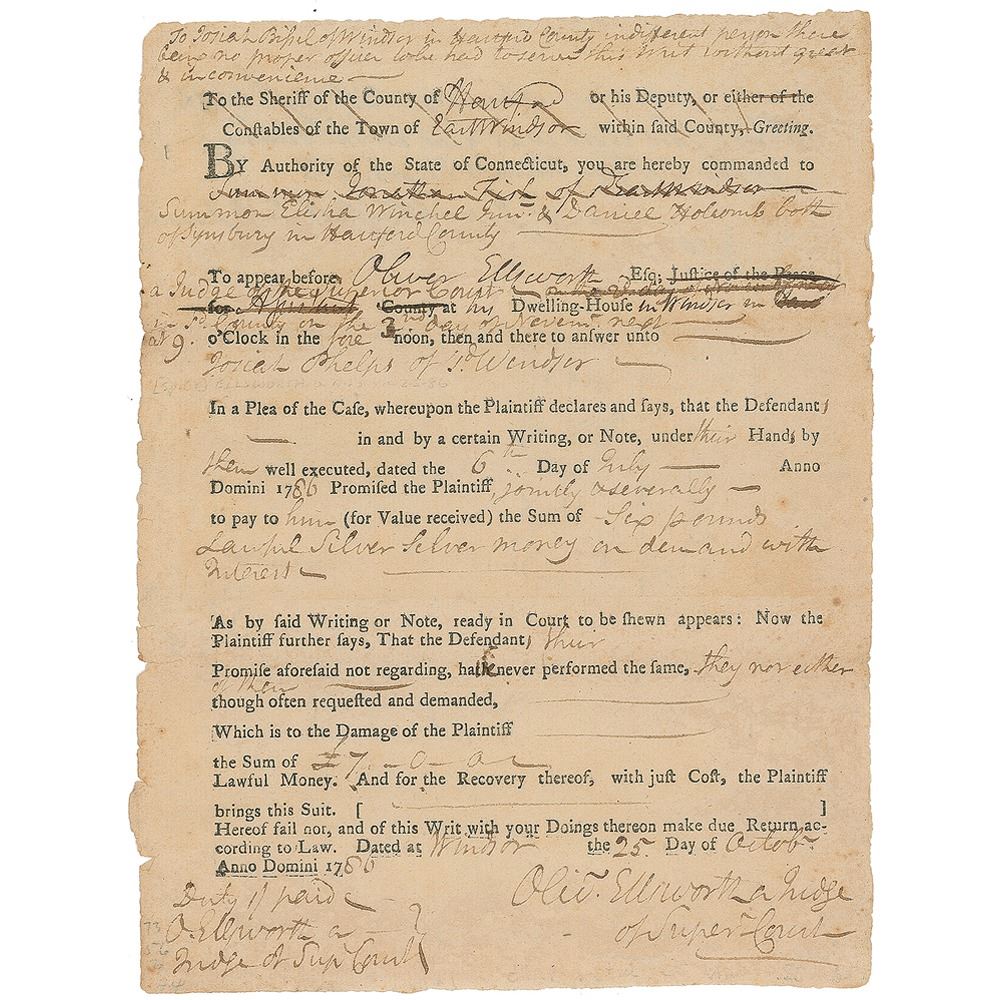 To Josiah Bissel of Windsor in Hartford County indifferent person there
being no proper officer to be had to serve this Writ without great
& inconvenience
To the Sheriff of the County of Hartford or his Deputy, or either of the
Conſtables of the Town of East Windsor within ſaid County, Greeting.
BY Authority of the State of Connecticut, you are hereby commanded to
Summon Jonathan Fish of East Windsor
Summon Elisha Winchel Junr. & Daniel Holcomb both
of Symsbury in Hartford County
To appear before Oliver Ellsworth Esq; Juſtice of the Peace
a Judge of the Superior Court
for Hartford County at his Dwelling-Houſe in Windsor in
in sd. County on the 3rd day of Novemr. next
at 9 o'Clock in the fore noon, then and there to anſwer unto
Josiah Phelps of sd. Windsor
In a Plea of the Caſe, whereupon the Plaintiff declares and ſays, that the Defendants
in and by a certain Writing, or Note, under their Hands by
them well executed, dated the 6th Day of July Anno
Domini 1786 Promiſed the Plaintiff, jointly & severally
to pay to him (for Value received) the Sum of Six pounds
Lawful Silver Silver money on demand with
Interest
As by ſaid Writing or Note, ready in Court to be ſhewn appears: Now the
Plaintiff further ſays, That the Defendants their
Promiſe aforeſaid not regarding, have never performed the ſame, they nor either
of them
though often requeſted and demanded,
Which is to the Damage of the Plaintiff
the Sum of £7-0-0
Lawful Money. And for the Recovery thereof, with juſt Coſt, the Plaintiff
brings this Suit. [ ]
Hereof fail not, and of this Writ with your Doings thereon make due Return ac-
cording to Law. Dated at Windsor the 25 Day of Octobr.
Anno Domini 1786
Duty 1/ paid
O. Ellsworth a
Judge of Sup Court
Olivr. Ellsworth a Judge
of Superr Court